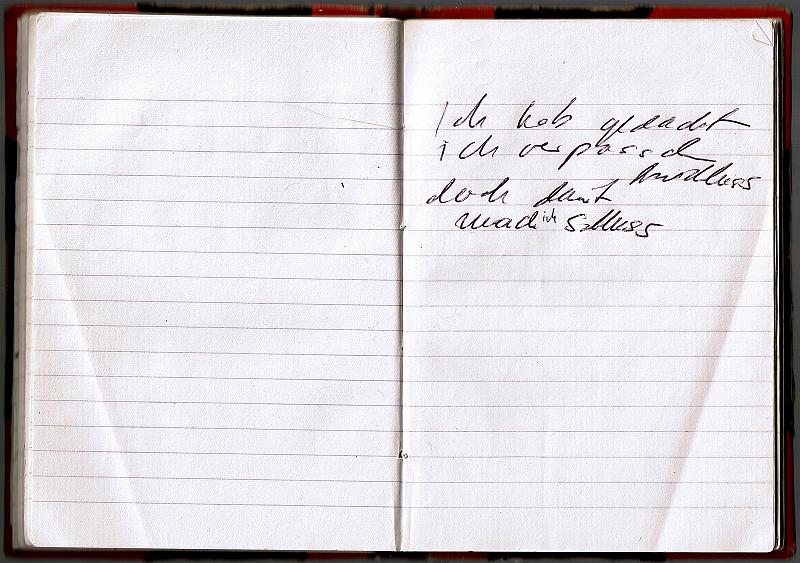 Ich hab gedacht
ich verpasse
Anschluss
doch damit
mach ich Schluss